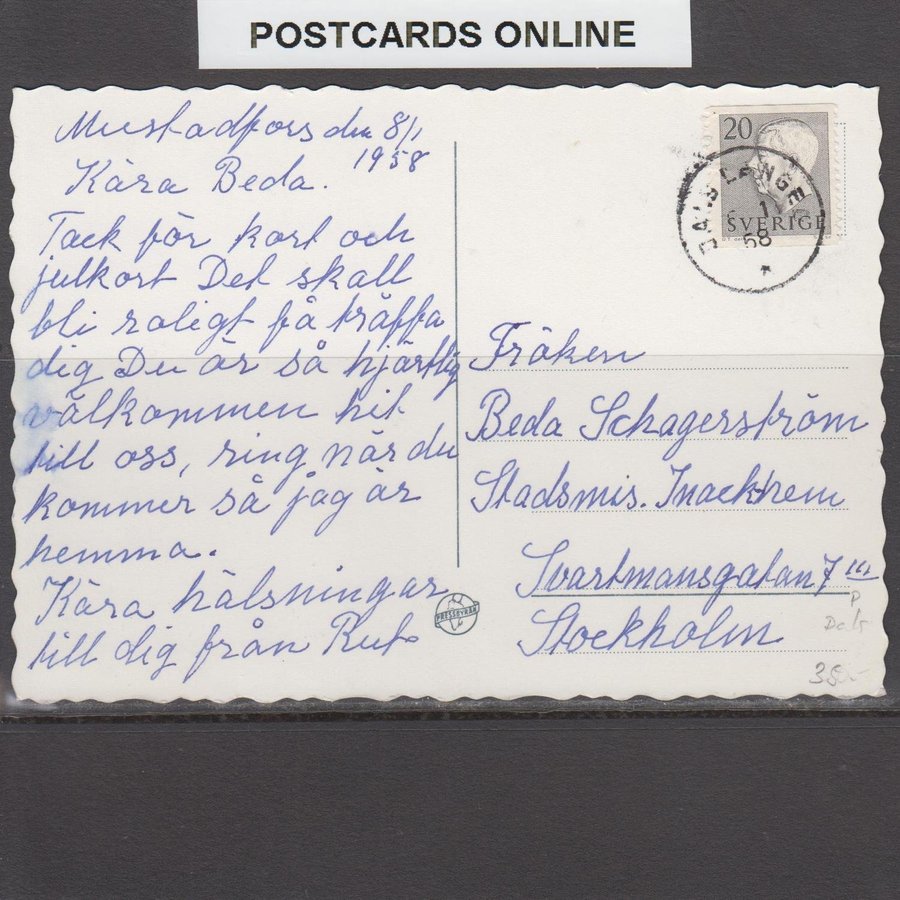 POSTCARDS ONLINE
Mustadfors den 8/1
1958
Kära Beda.
Tack för kort och
julkort Det skall
bli roligt få träffa
dig Du är så hjärtlig
välkommen hit
till oss, ring när du
kommer så jag är
hemma.
Kära hälsningar
till dig från Rut
PRESSBYRÅN
20
SVERIGE
DALS LÅNGE
1
58
Fröken
Beda Schagerström
Stadsmis. Inackhem
Svartmansgatan 7 III
Stockholm
P
Dals
35:-